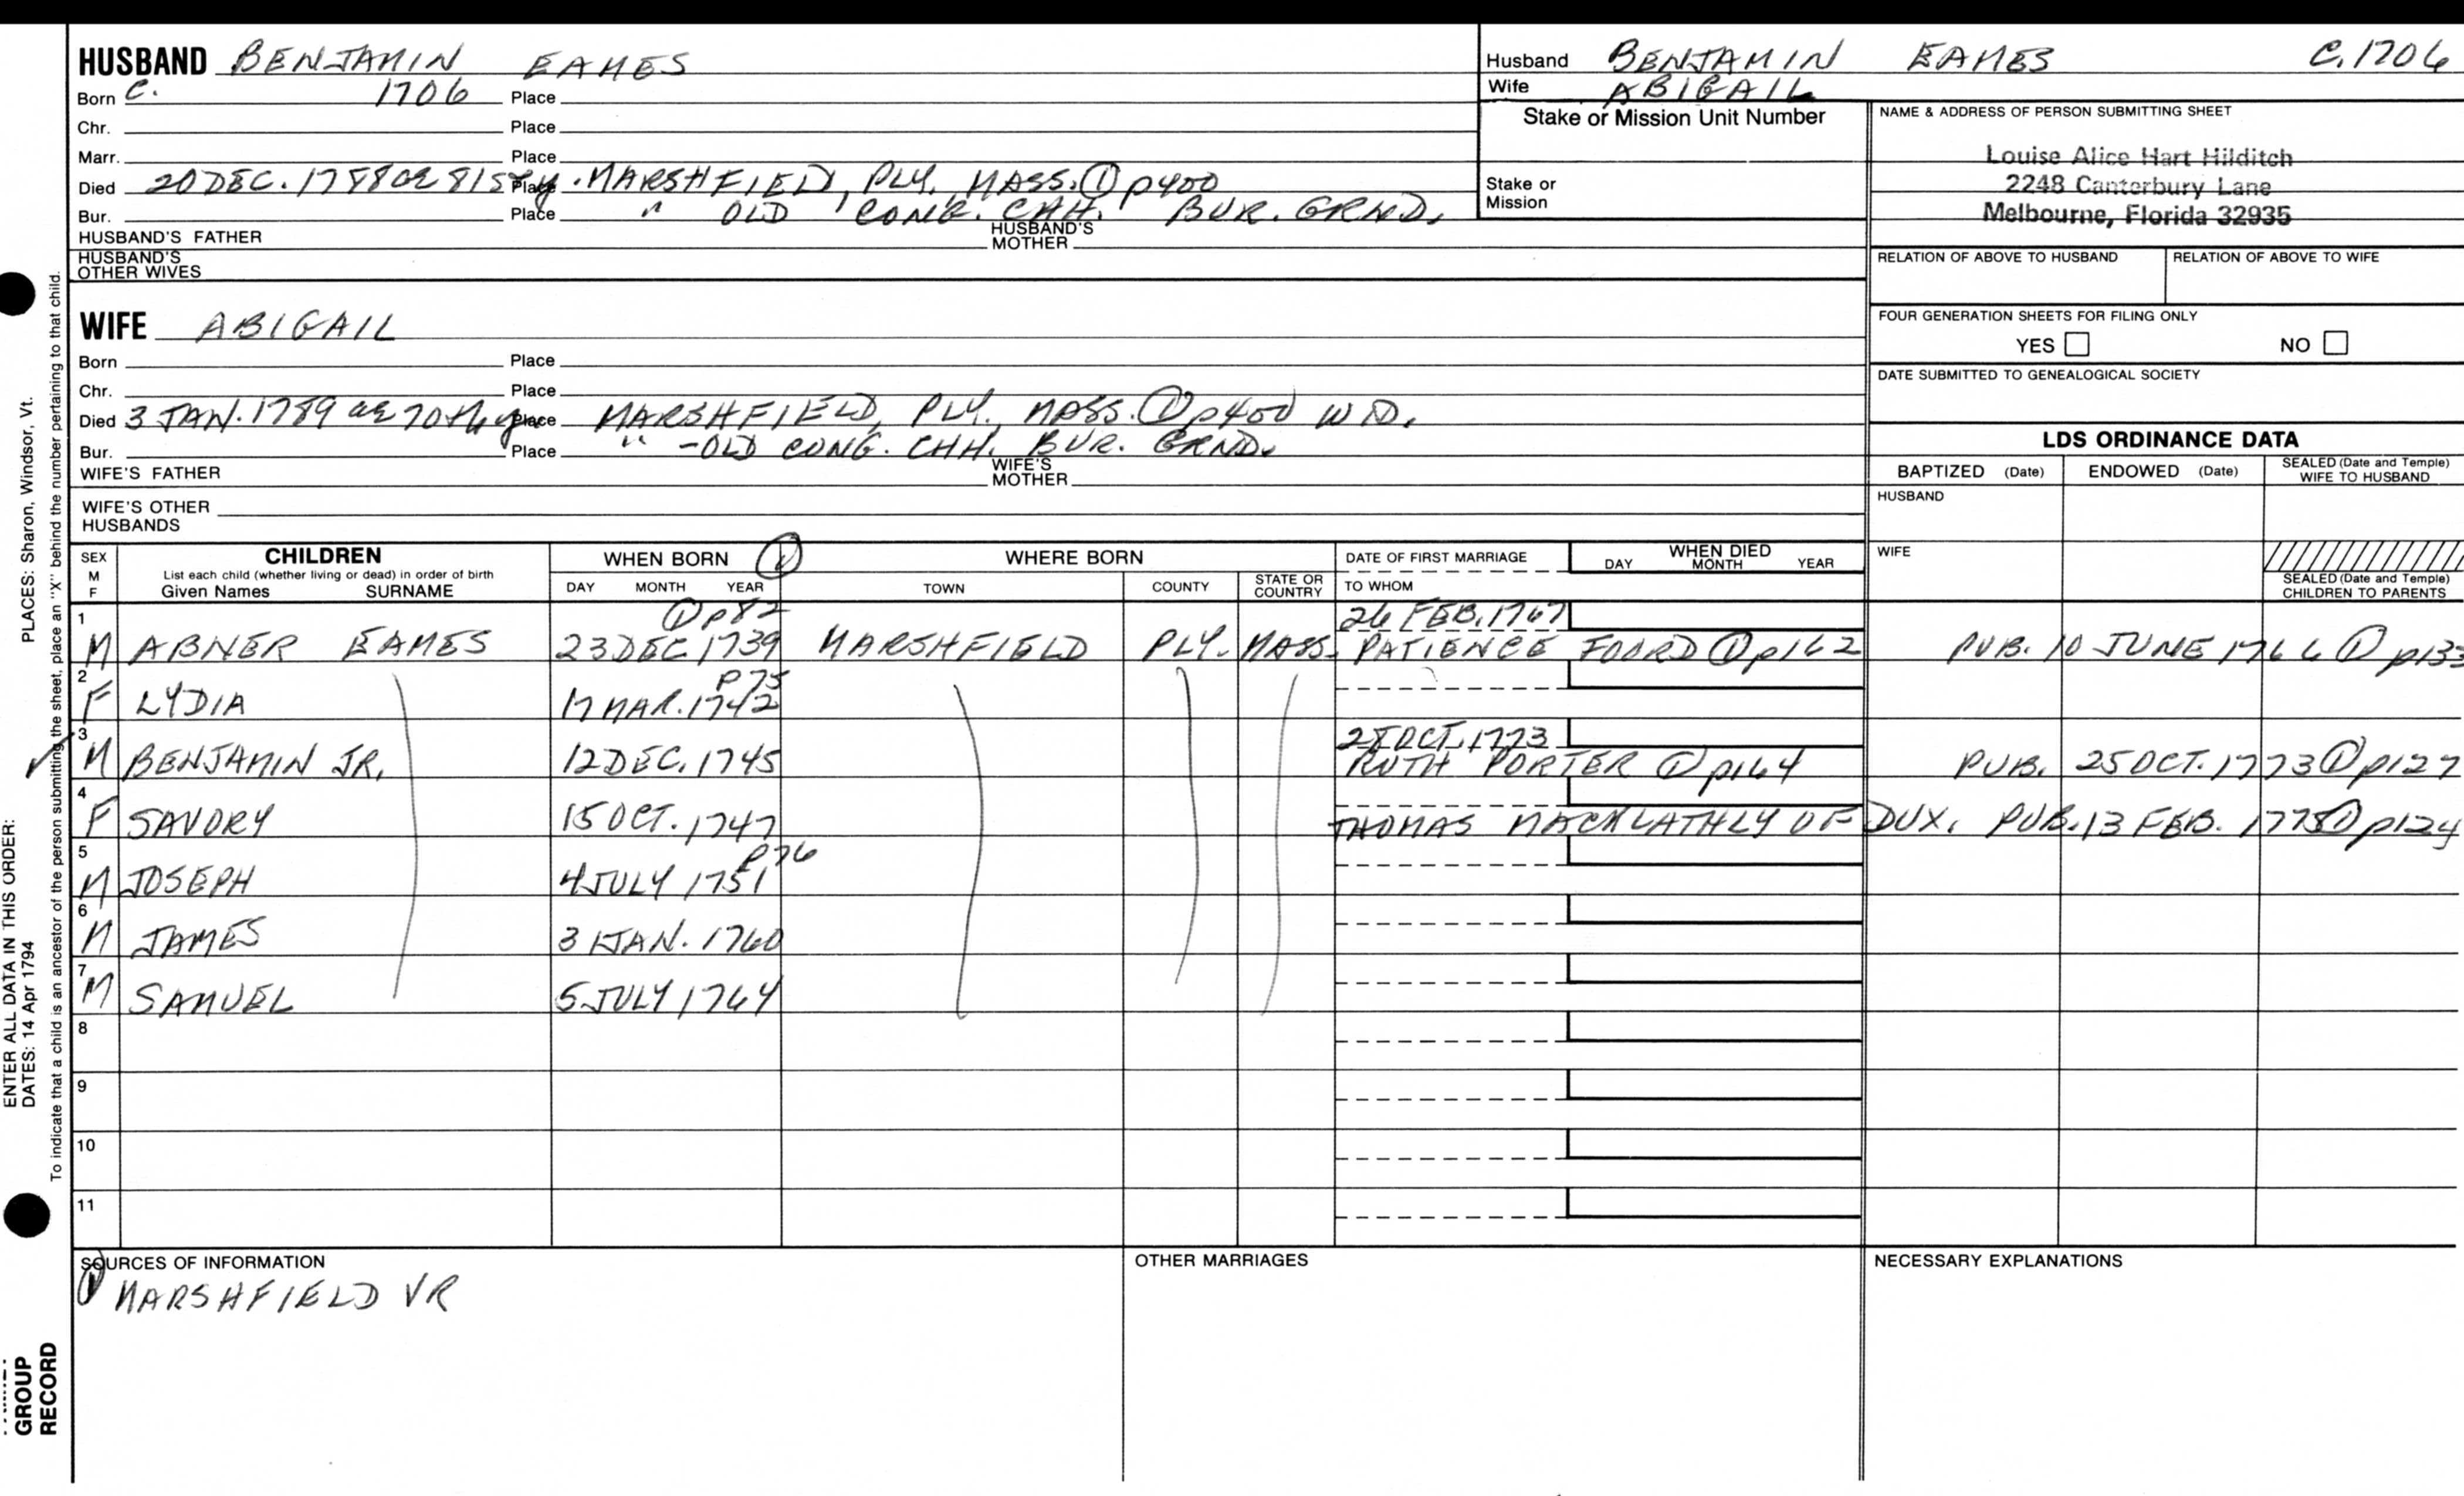 HUSBAND BENJAMIN EAMES
Born C. 1706 Place
Chr. Place
Marr. Place
Died 20 DEC. 1788 ae 81st y. Place MARSHFIELD, PLY. MASS. ① p400
Bur. Place " OLD CONG. CHH. BUR. GRND.
HUSBAND'S FATHER HUSBAND'S MOTHER
HUSBAND'S OTHER WIVES
Husband BENJAMIN EAMES C. 1706
Wife ABIGAIL
Stake or Mission Unit Number
Stake or Mission
NAME & ADDRESS OF PERSON SUBMITTING SHEET
Louise Alice Hart Hilditch
2248 Canterbury Lane
Melbourne, Florida 32935
RELATION OF ABOVE TO HUSBAND RELATION OF ABOVE TO WIFE
FOUR GENERATION SHEETS FOR FILING ONLY
YES NO
DATE SUBMITTED TO GENEALOGICAL SOCIETY
WIFE ABIGAIL
Born Place
Chr. Place
Died 3 JAN. 1789 ae 70th y Place MARSHFIELD, PLY. MASS. ① p400 WD.
Bur. Place " - OLD CONG. CHH. BUR. GRND.
WIFE'S FATHER WIFE'S MOTHER
WIFE'S OTHER HUSBANDS
LDS ORDINANCE DATA
BAPTIZED (Date) ENDOWED (Date) SEALED (Date and Temple) WIFE TO HUSBAND
HUSBAND
WIFE
SEALED (Date and Temple) CHILDREN TO PARENTS
SEX M F
CHILDREN
List each child (whether living or dead) in order of birth
Given Names SURNAME
WHEN BORN ①
DAY MONTH YEAR
WHERE BORN
TOWN COUNTY STATE OR COUNTRY
DATE OF FIRST MARRIAGE
TO WHOM
WHEN DIED
DAY MONTH YEAR
① p82 26 FEB. 1767
1 M ABNER EAMES 23 DEC 1739 MARSHFIELD PLY. MASS. PATIENCE FOORD ① p162 PUB. 10 JUNE 1766 ① p133
p75
2 F LYDIA 17 MAR. 1742
28 OCT. 1773
3 M BENJAMIN JR. 12 DEC. 1745 RUTH PORTER ① p164 PUB. 25 OCT. 1773 ① p127
4 F SAVORY 15 OCT. 1747 THOMAS MACKLATHLY OF DUX. PUB. 13 FEB. 1775 ① p124
p76
5 M JOSEPH 4 JULY 1751
6 M JAMES 31 JAN. 1760
7 M SAMUEL 5 JULY 1764
8
9
10
11
SOURCES OF INFORMATION
① MARSHFIELD VR
OTHER MARRIAGES
NECESSARY EXPLANATIONS
ENTER ALL DATA IN THIS ORDER:
DATES: 14 Apr 1794 PLACES: Sharon, Windsor, Vt.
To indicate that a child is an ancestor of the person submitting the sheet, place an "X" behind the number pertaining to that child.
GROUP
RECORD